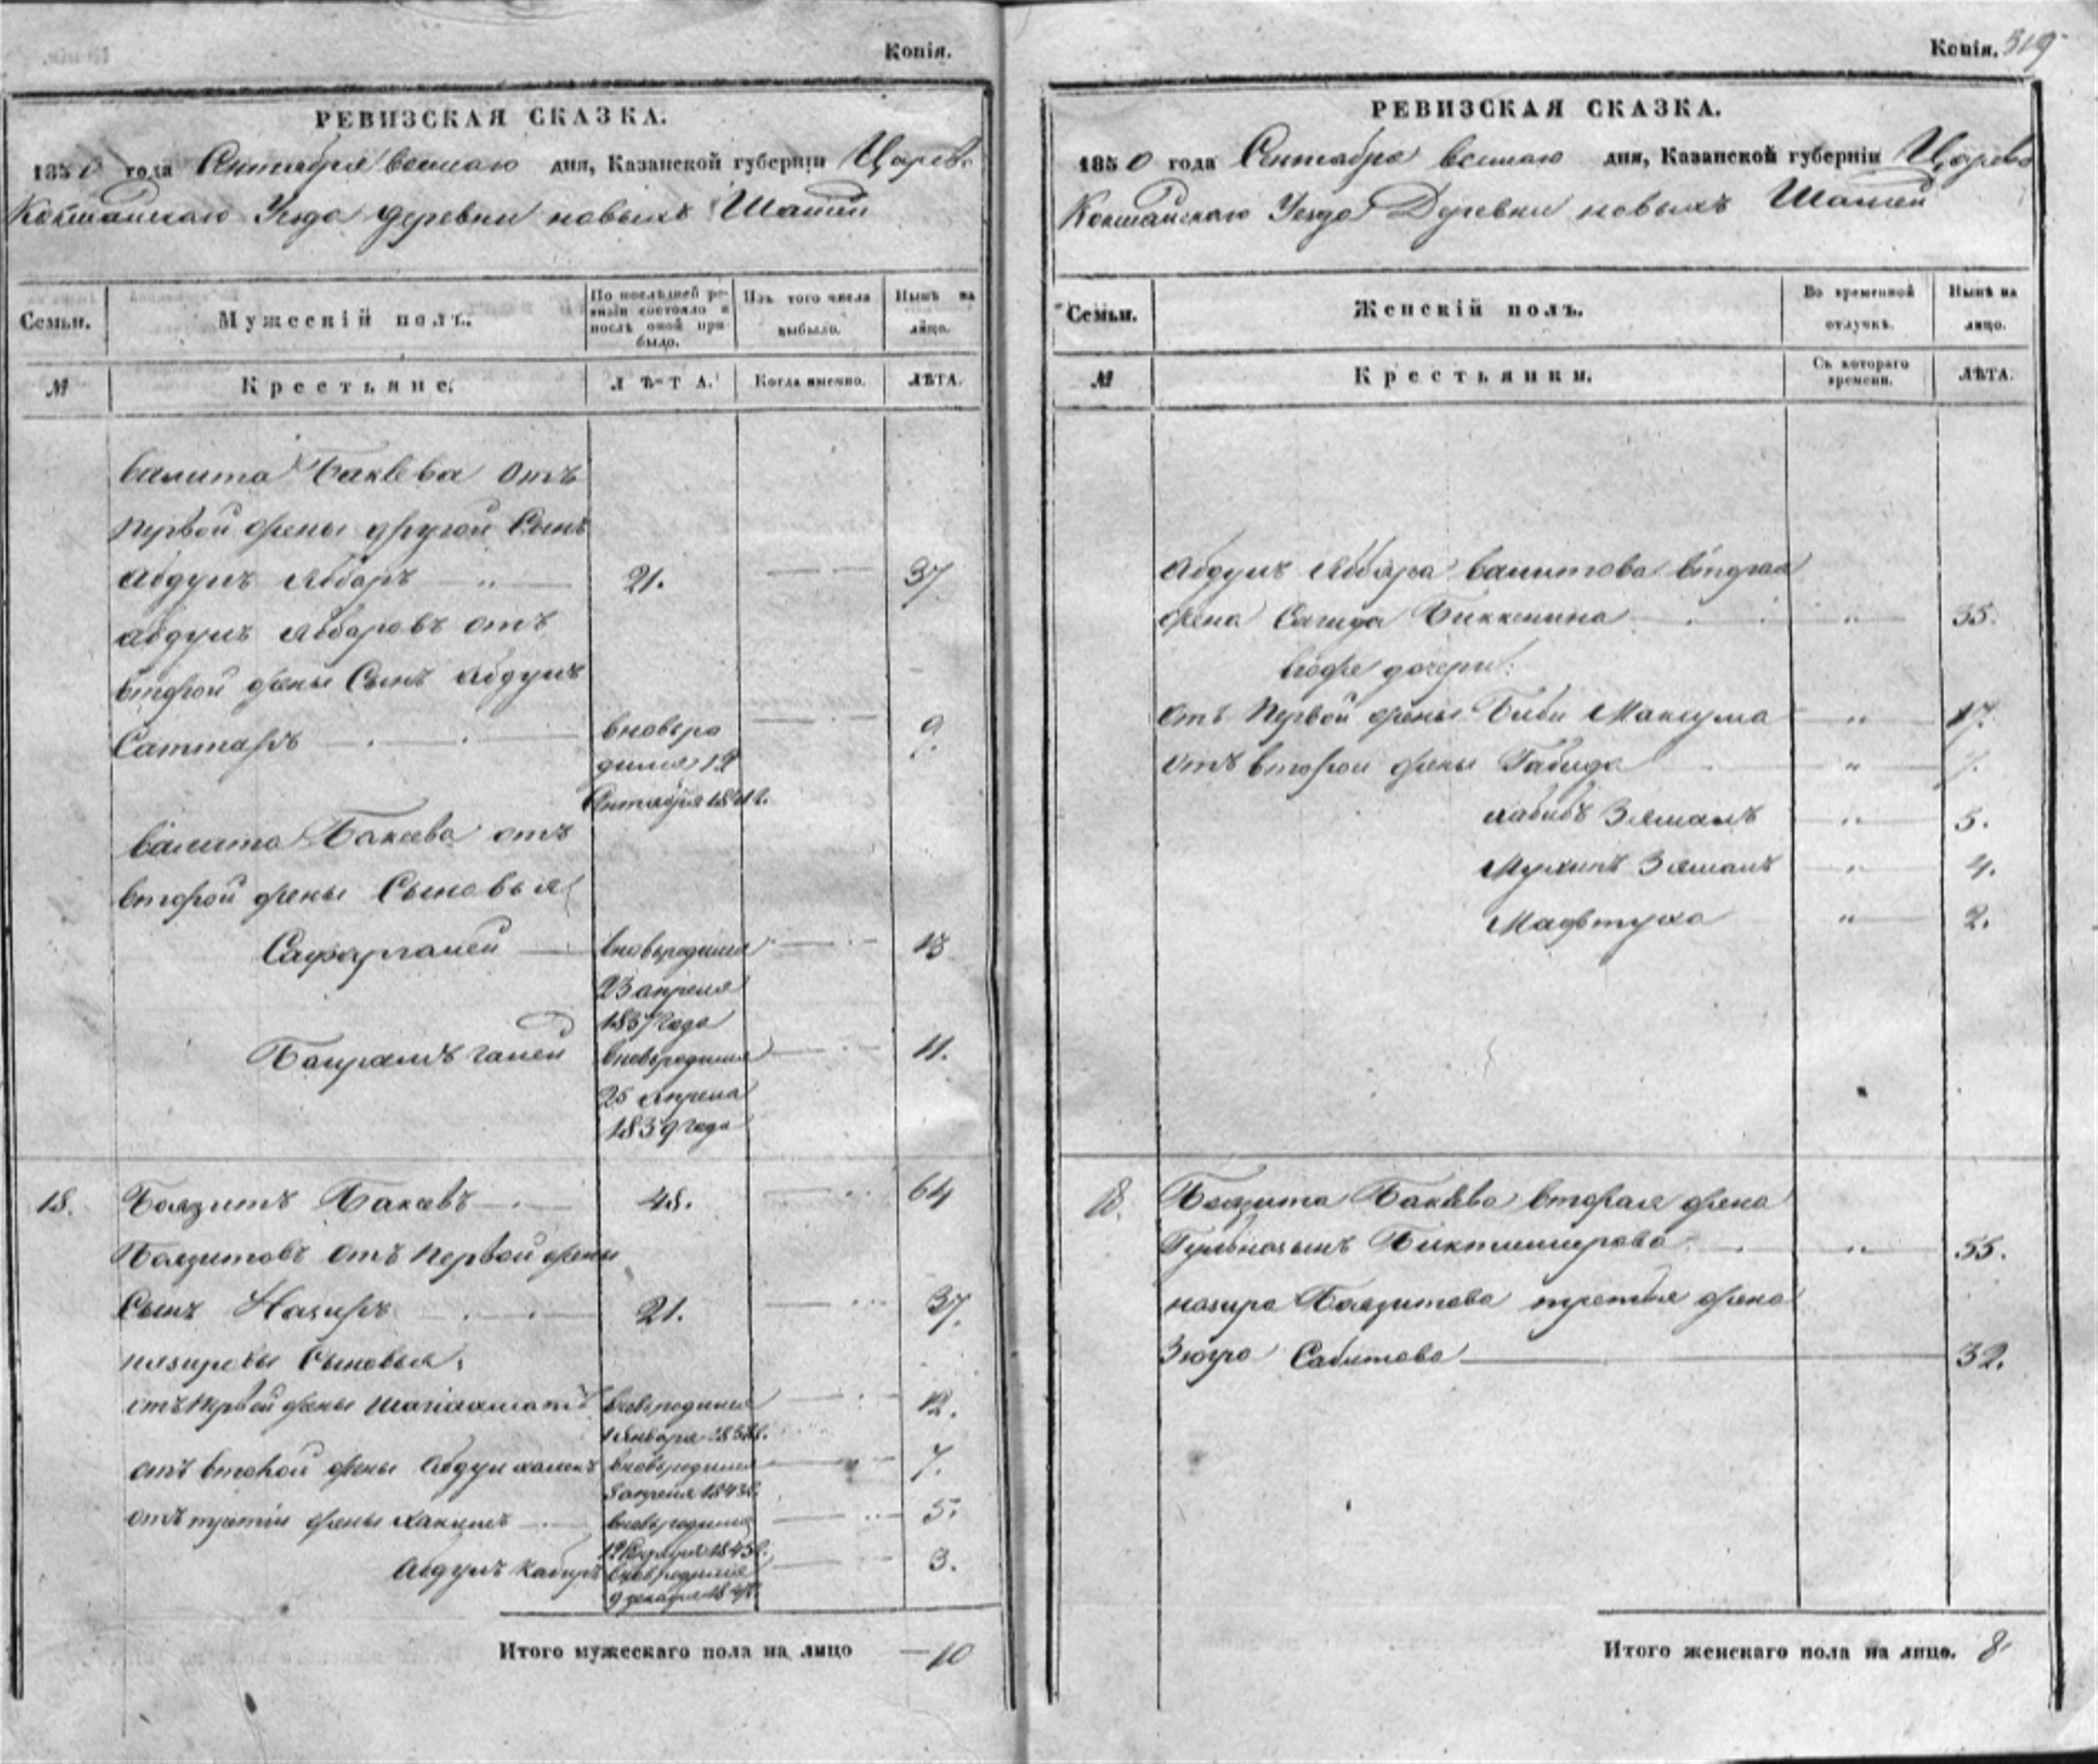 Копія.
РЕВИЗСКАЯ СКАЗКА.
1850 года Сентября осьмаго дня, Казанской губерніи Царево
Кокшайскаго Уезда деревни новыхъ
Семьи.
Мужескій полъ.
По послѣдней ре-
визіи состояло и
послѣ оной при-
было.
Изъ того числа
выбыло.
Нынѣ на
лицо.
№
Крестьяне.
ЛѢТА.
Когда именно.
ЛѢТА.
Валита Бакѣева отъ
первой жены другой Сынъ
Абдулъ Яббаръ 21. 37
Абдулъ Яббаровъ отъ
второй жены Сынъ Абдулъ
Саттаръ вновь ро 9.
дился 12
Сентября 1841 г.
Валита Бакаева отъ
второй жены Сыновья
Сафаргалей вновь родился 13
23 апреля
1837 года
Баирамъ галей вновь родился 11.
25 апреля
1839 года
18. Баязитъ Бакаевъ 48. 64
Баязитовъ отъ первой жены
Сынъ Назиръ 21. 37.
назировы Сыновья,
отъ первой жены вновь родился 12.
1 января 1838 г.
отъ второй жены вновь родился 7.
8 апреля 1843 г.
отъ третіи жены Хакимъ вновь родился 5.
1845 г.
Абдулъ Кабиръ вновь родился 3.
9 декабря 1847 г.
Итого мужескаго пола на лицо 10
Копія. 319
РЕВИЗСКАЯ СКАЗКА.
1850 года Сентября осьмаго дня, Казанской губерніи Царево
Кокшайскаго Уезда Деревни новыхъ
Семьи.
Женскій полъ.
Во временной
отлучкѣ.
Нынѣ на
лицо.
№
Крестьянки.
Съ котораго
времени.
ЛѢТА.
Абдулъ Яббара Валитова вторая
жена Сагида Биккинина " 35.
Ево же дочери:
отъ первой жены Биби Максума " 17.
отъ второй жены Габида " 7.
Хабибъ Зямалъ " 5.
Зямалъ " 4.
Мафтуха " 2.
18. Баязита Бакаева вторая жена
Биктимирова " 55.
назира Баязитова третья жена
Зюгра Сабитова 32.
Итого женскаго пола на лицо. 8